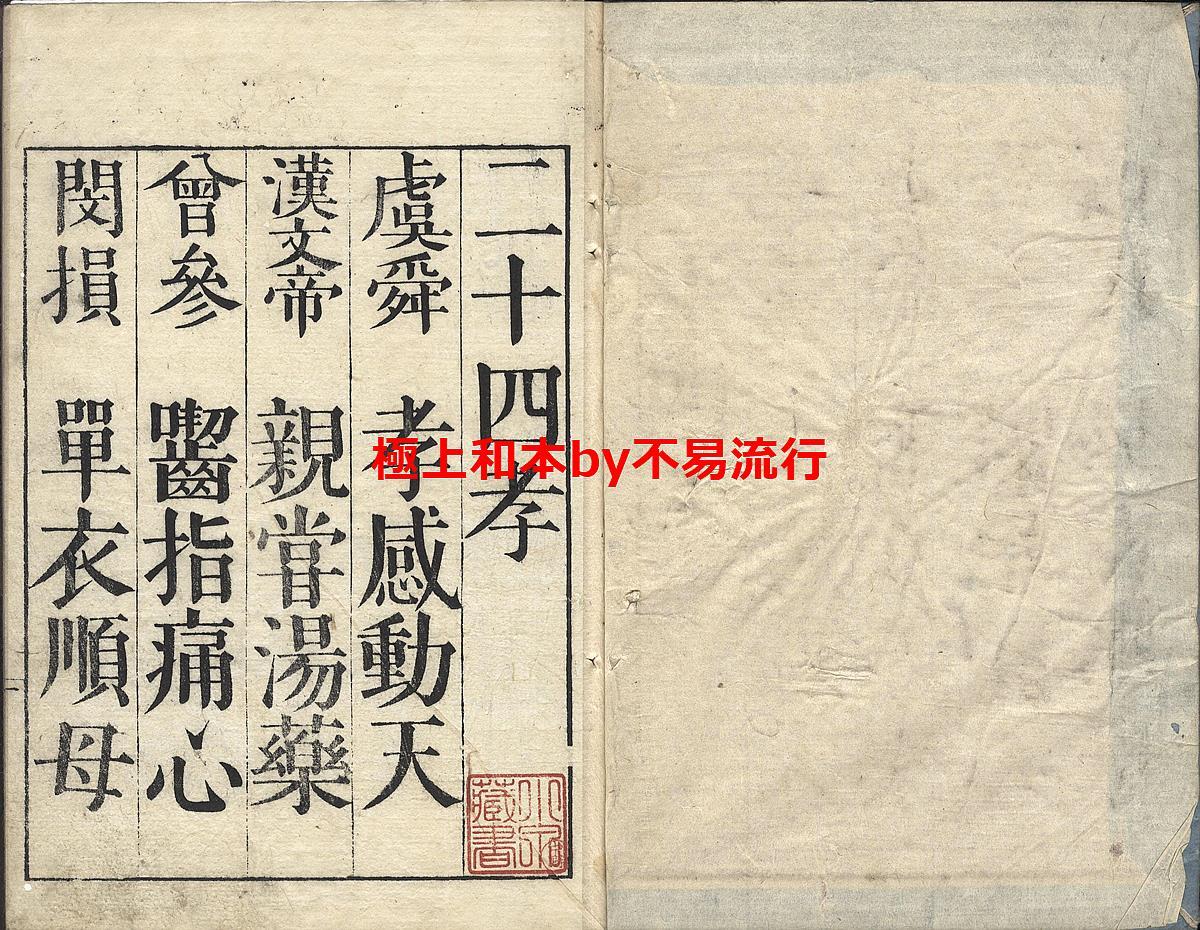 二十四孝
虞舜 孝感動天
漢文帝 親嘗湯藥
曾參 嚙指痛心
閔損 單衣順母
極上和本by不易流行
藏書